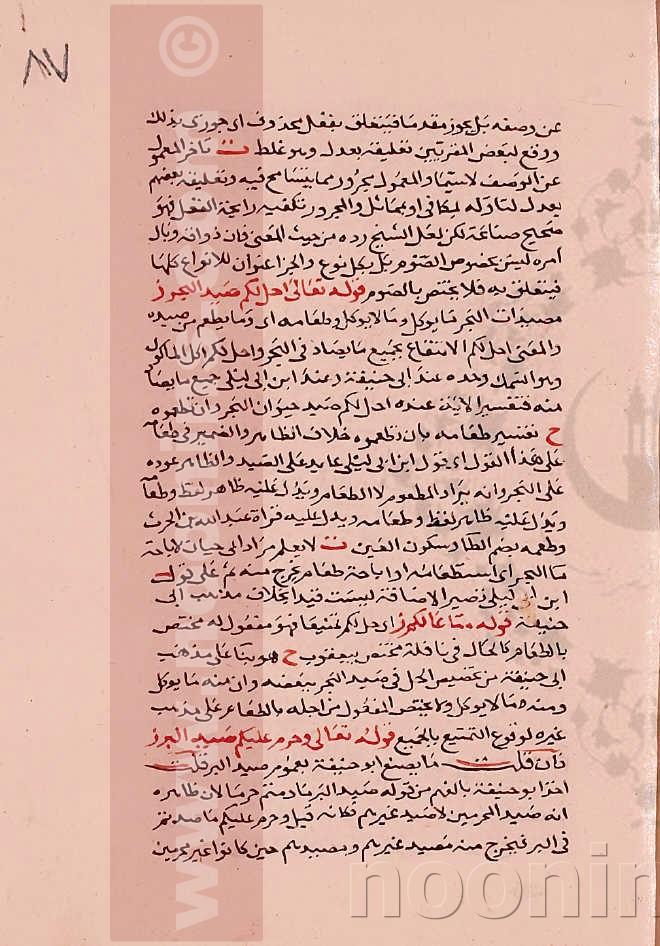 ٨٧
عن وصفه بل يجوز مقدما فيتعلق بفعل محذوف اى جوزى بذلك
ووقع لبعض المغربين تعليقه بعدل وهو غلط ت تأخر المعمول
عن الوصف لاسيما والمعمول مجرور مما يتسامح فيه وتعليقه بعضهم
بعدل لتاوله بمكافى او بمماثل والمجرور تكفيه رائحة الفعل فهو
صحيح صناعة لكن لعل الشيخ رده من حيث المعنى فان ذوانه وبال
امره ليس بخصوص الصوم بل بكل نوع والجزا عنوان للانواع كلها
فيتعلق به فلا يختص بالصوم قوله تعالى احل لكم صيد البحر ز
مصيدات البحر مما يوكل ومما لا يوكل وطعامه اى وما يطعم من صيده
والمعنى احل لكم الانتفاع بجميع ما يصاد فى البحر واحل لكم اكل الماكول
وهو السمك وحده عند ابى حنيفة وعند ابن ابى ليلى جميع ما يصاد
منه فتفسير الاية عنده احل لكم صيد حيوان البحر وان تطعموه
ح تفسير طعامه بان تطعموه خلاف الظاهر والضمير فى طعامه
على هذا القول اى قول ابن ابى ليلى عايد على الصيد والظاهر عوده
على البحر وانه يراد المطعوم لا الطعام ويدل عليه ظاهر لفظ وطعامه
ويدل عليه ظاهر لفظ وطعامه ويدل عليه قراة عبد الله بن الحرث
وطعمه بضم الطا وسكون العين ت لا يعلم مراد ابى حيان لاباحة
ما البحر اى استطعامه او اباحة طعام يخرج منه ثم على قول
ابن ابى ليلى تصير الاضافة ليست قيدا بخلاف مذهب ابى
حنيفة قوله متاعا لكم ز اى احل لكم تمتيعا فهو مفعول له مختص
بالطعام كالحال فى نافلة مختص بيعقوب ح هو بنا على مذهب
ابى حنيفة من تخصيص الحل فى صيد البحر ببعضه وان منه ما يوكل
ومنه ما لا يوكل ولا يختص المفعول من اجله بالطعام على مذهب
غيره لوقوع التمتيع بالجميع قوله تعالى وحرم عليكم صيد البر ز
فان قلت ما يصنع ابو حنيفة بعموم صيد البر قلت
اخذ ابو حنيفة بالفهم من قوله صيد البر ما دمتم حرما لان ظاهره
انه صيد المحرمين لا صيد غيرهم فكانه قيل وحرم عليكم ما صدتم
فى البر فيخرج منه مصيد غيرهم ومصيدهم حين كانوا غير محرمين